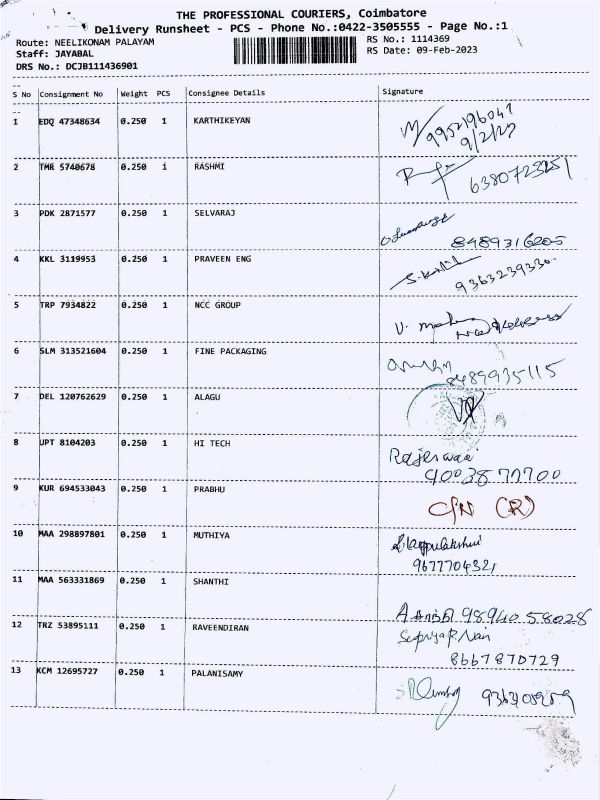 THE PROFESSIONAL COURIERS, Coimbatore
Delivery Runsheet - PCS - Phone No.:0422-3505555 - Page No.:1
Route: NEELIKONAM PALAYAM
RS No.: 1114369
Staff: JAYABAL
RS Date: 09-Feb-2023
DRS No.: DCJB111436901
S No Consignment No Weight PCS Consignee Details Signature
1 EDQ 47348634 0.250 1 KARTHIKEYAN
9952196047
9/2/23
2 TMR 5740678 0.250 1 RASHMI
3 PDK 2871577 0.250 1 SELVARAJ
8489316205
4 KKL 3119853 0.250 1 PRAVEEN ENG
9363239330
5 TRP 7934822 0.250 1 NCC GROUP
6 SLM 313521604 0.250 1 FINE PACKAGING
8489935115
7 DEL 120762629 0.250 1 ALAGU
8 UPT 8104203 0.250 1 HI TECH
Rajeswari
9 KUR 694533043 0.250 1 PRABHU
C/N (R)
10 MAA 298897801 0.250 1 MUTHIYA
9677704321
11 MAA 563331869 0.250 1 SHANTHI
98940 58028
12 TRZ 53895111 0.250 1 RAVEENDIRAN
Supriya R Nair
8667870729
13 KCM 12695727 0.250 1 PALANISAMY